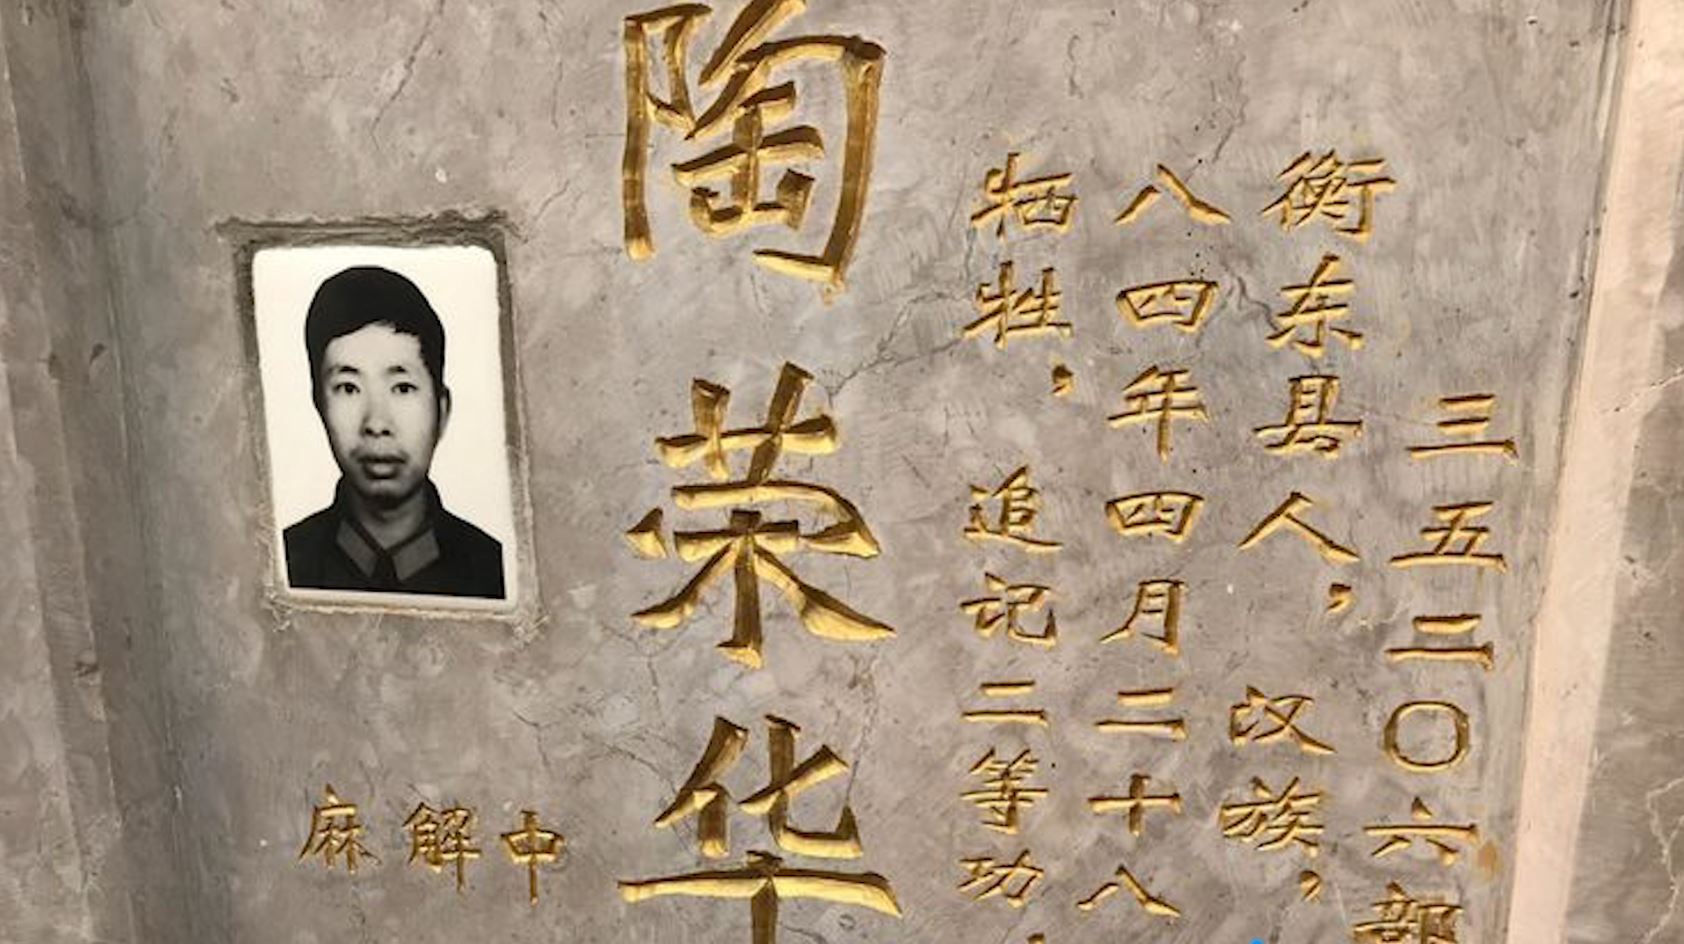 三五二〇六部
衡东县人，汉族，
八四年四月二十八
牺牲，追记二等功，
陶荣华
中
解
麻